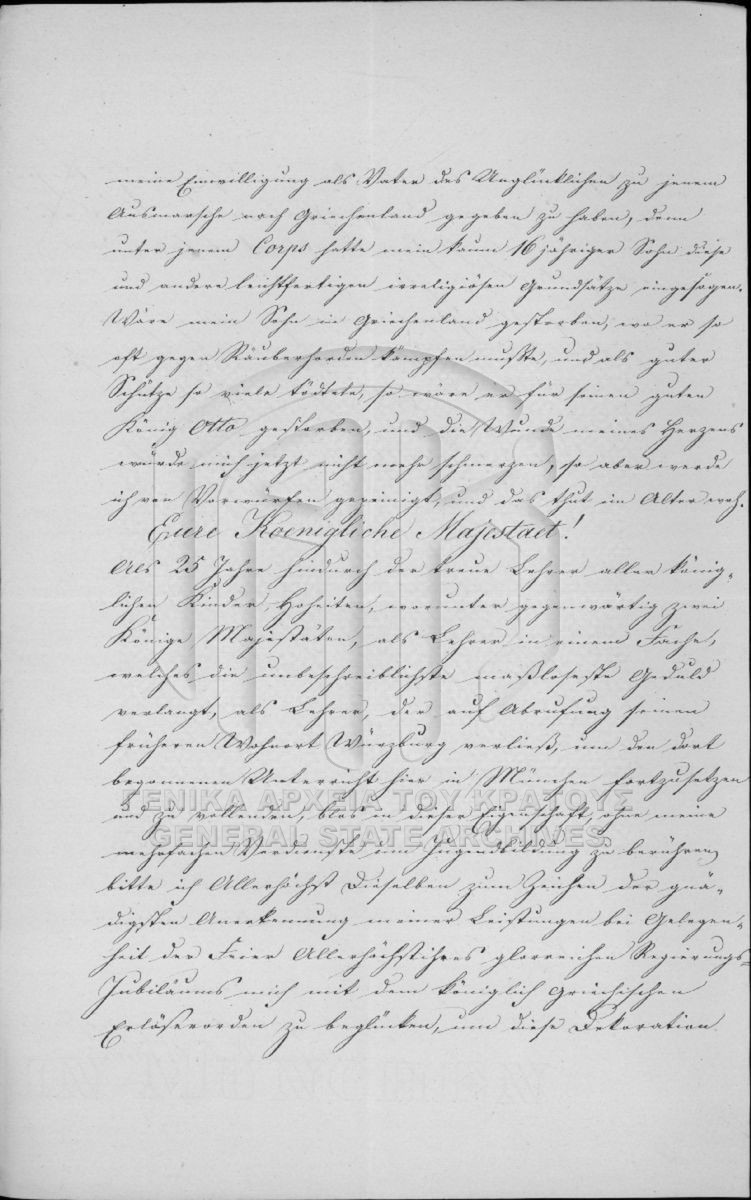 meine Einwilligung als Vater des Unglücklichen zu jenem
Ausmarsche nach Griechenland gegeben zu haben, denn
unter jenem Corps hatte mein kaum 16 jähriger Sohn diese
und andere leichtfertigen irreligiösen Grundsätze eingesogen.
Wäre mein Sohn in Griechenland gestorben, wo er so
oft gegen Räuberhorden kämpfen mußte, und als guter
Schütze so viele tödtete, so wäre er für seinen guten
König Otto gestorben, und die Wunde meines Herzens
würde mich jetzt nicht mehr schmerzen, so aber werde
ich von Vorwürfen gepeinigt, und das thut im Alter weh.
Eure Koenigliche Majestaet!
Als 25 Jahre hindurch der treue Lehrer aller könig-
lichen Kinder, Hoheiten, worunter gegenwärtig zwei
Könige, Majestäten, als Lehrer in einem Fache,
welches die unbeschreiblichste maßloseste Geduld
verlangt, als Lehrer, der auf Abrufung seinen
früheren Wohnort Würzburg verließ, um den dort
begonnenen Unterricht hier in München fortzusetzen
und zu vollenden, blos in dieser Eigenschaft, ohne meine
mehrfachen Verdienste um Jugendbildung zu berühren,
bitte ich Allerhöchst Dieselben zum Zeichen der gnä-
digsten Anerkennung meiner Leistungen bei Gelegen-
heit der Feier Allerhöchstihres glorreichen Regierungs-
Jubiläums mich mit dem königlich griechischen
Erlöserorden zu beglücken, um diese Dekoration
ΓΕΝΙΚΑ ΑΡΧΕΙΑ ΤΟΥ ΚΡΑΤΟΥΣ
GENERAL STATE ARCHIVES